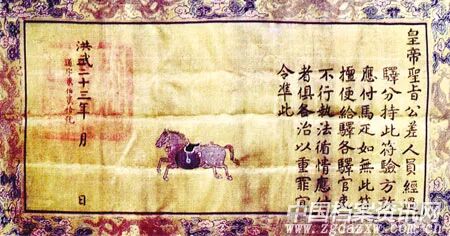 皇帝聖旨公差人員經過
驛分持此符驗方許
應付馬疋如無此符
擅便給驛各驛官吏
不行執法循情應付
者俱各治以重罪宜
令準此
洪武二十三年 月 日
中国档案资讯网
www.zgdazxw.com.cn